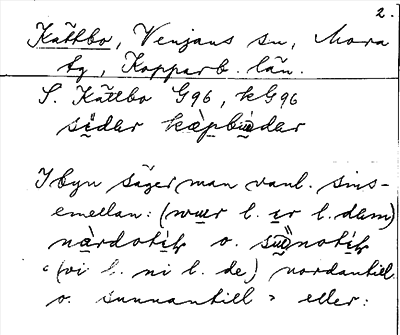 2.
Kättbo, Venjans sn, Mora
tg, Kopparb. län.
S. Kättbo G96, kG96
I byn säger man vanl. sins-
emellan: (wur l. er l. dem)
nàrdotik o.
"(vi l. ni l. de) nordantill
o. sunnantill" eller: